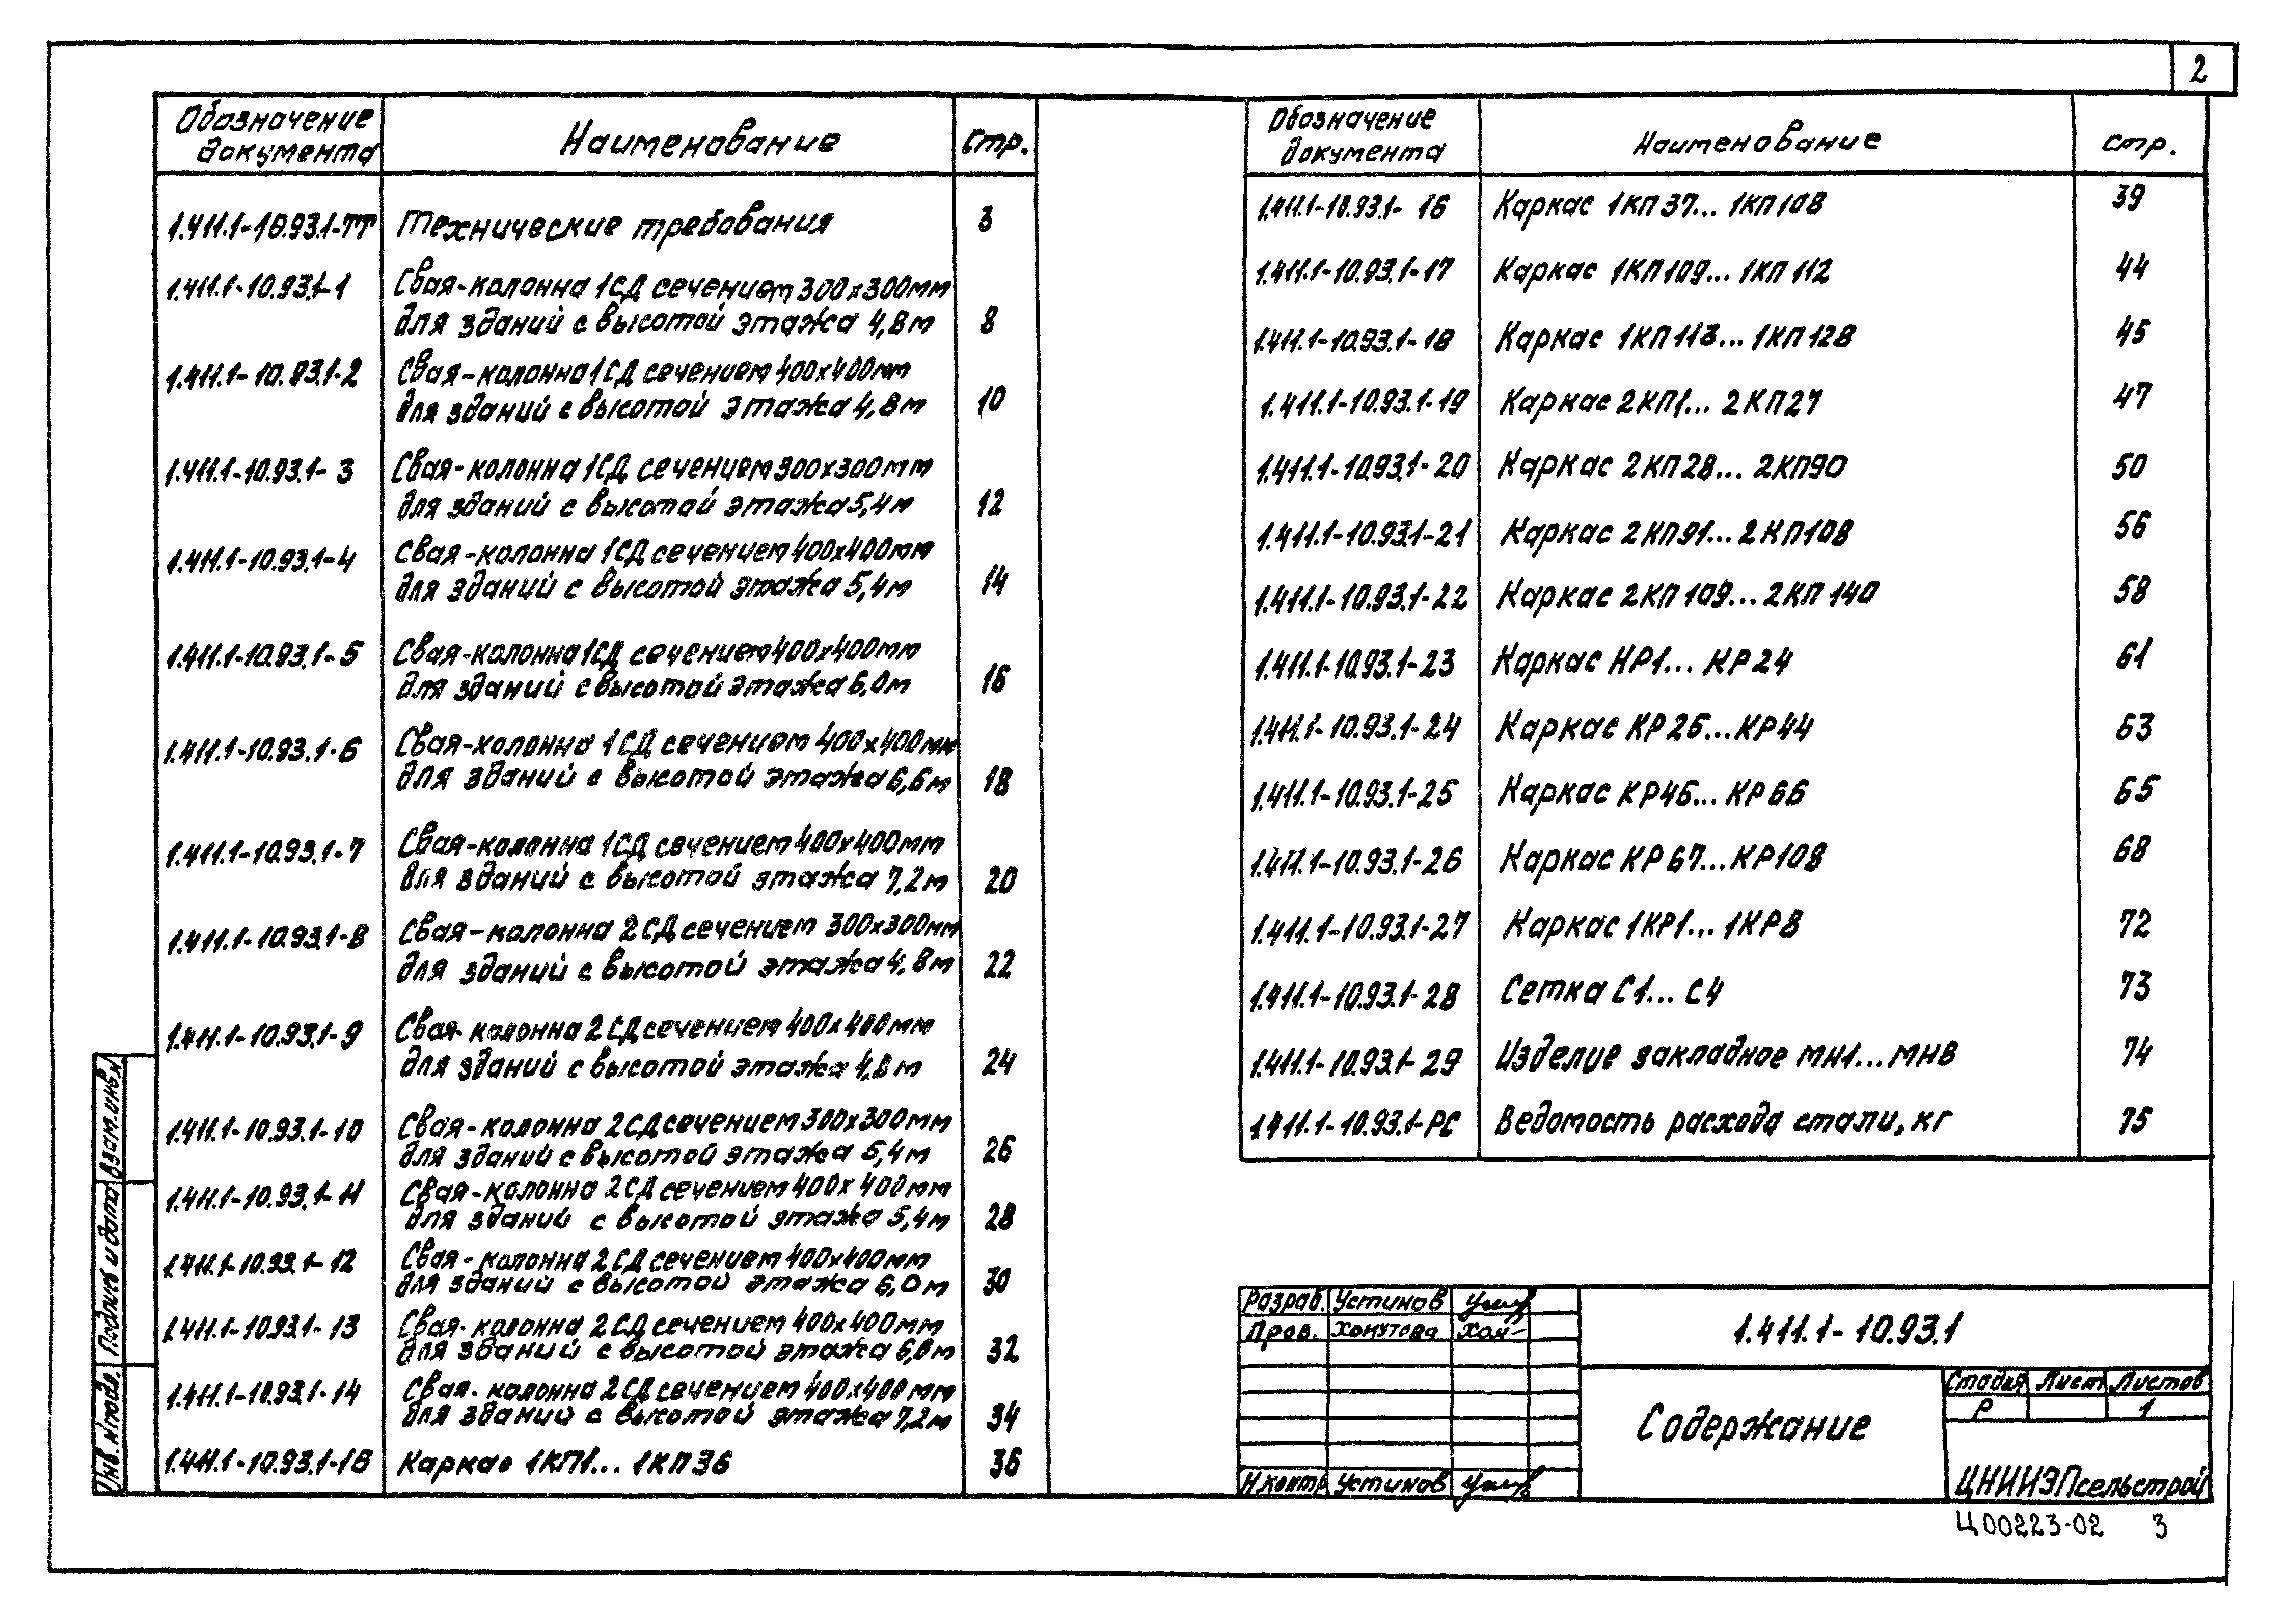 2
Обозначение документа Наименование стр.
1.411.1-10.93.1-ТТ Технические требования 3
1.411.1-10.93.1-1 Свая-колонна 1СД сечением 300х300мм
для зданий с высотой этажа 4,8м 8
1.411.1-10.93.1-2 Свая-колонна 1СД сечением 400х400мм
для зданий с высотой этажа 4,8м 10
1.411.1-10.93.1-3 Свая-колонна 1СД сечением 300х300мм
для зданий с высотой этажа 5,4м 12
1.411.1-10.93.1-4 Свая-колонна 1СД сечением 400х400мм
для зданий с высотой этажа 5,4м 14
1.411.1-10.93.1-5 Свая-колонна 1СД сечением 400х400мм
для зданий с высотой этажа 6,0м 16
1.411.1-10.93.1-6 Свая-колонна 1СД сечением 400х400мм
для зданий с высотой этажа 6,6м 18
1.411.1-10.93.1-7 Свая-колонна 1СД сечением 400х400мм
для зданий с высотой этажа 7,2м 20
1.411.1-10.93.1-8 Свая-колонна 2СД сечением 300х300мм
для зданий с высотой этажа 4,8м 22
1.411.1-10.93.1-9 Свая-колонна 2СД сечением 400х400мм
для зданий с высотой этажа 4,8м 24
1.411.1-10.93.1-10 Свая-колонна 2СД сечением 300х300мм
для зданий с высотой этажа 5,4м 26
1.411.1-10.93.1-11 Свая-колонна 2СД сечением 400х400мм
для зданий с высотой этажа 5,4м 28
1.411.1-10.93.1-12 Свая-колонна 2СД сечением 400х400мм
для зданий с высотой этажа 6,0м 30
1.411.1-10.93.1-13 Свая-колонна 2СД сечением 400х400мм
для зданий с высотой этажа 6,6м 32
1.411.1-10.93.1-14 Свая-колонна 2СД сечением 400х400мм
для зданий с высотой этажа 7,2м 34
1.411.1-10.93.1-15 Каркас 1КП1... 1КП36 36
Обозначение документа Наименование стр.
1.411.1-10.93.1-16 Каркас 1КП37... 1КП108 39
1.411.1-10.93.1-17 Каркас 1КП109... 1КП112 44
1.411.1-10.93.1-18 Каркас 1КП113... 1КП128 45
1.411.1-10.93.1-19 Каркас 2КП1... 2КП27 47
1.411.1-10.93.1-20 Каркас 2КП28... 2КП90 50
1.411.1-10.93.1-21 Каркас 2КП91... 2КП108 56
1.411.1-10.93.1-22 Каркас 2КП109... 2КП140 58
1.411.1-10.93.1-23 Каркас КР1... КР24 61
1.411.1-10.93.1-24 Каркас КР26... КР44 63
1.411.1-10.93.1-25 Каркас КР45... КР66 65
1.411.1-10.93.1-26 Каркас КР67... КР108 68
1.411.1-10.93.1-27 Каркас 1КР1... 1КР8 72
1.411.1-10.93.1-28 Сетка С1... С4 73
1.411.1-10.93.1-29 Изделие закладное МН1... МН8 74
1.411.1-10.93.1-РС Ведомость расхода стали, кг 75
Взам. инв.№
Подпись и дата
Инв. №подл.
Разраб. Устинов
Пров. Хомутова
Н.контр Устинов
1.411.1-10.93.1
Содержание
Стадия Лист Листов
Р 1
ЦНИИЭПсельстрой
Ц00223-02 3